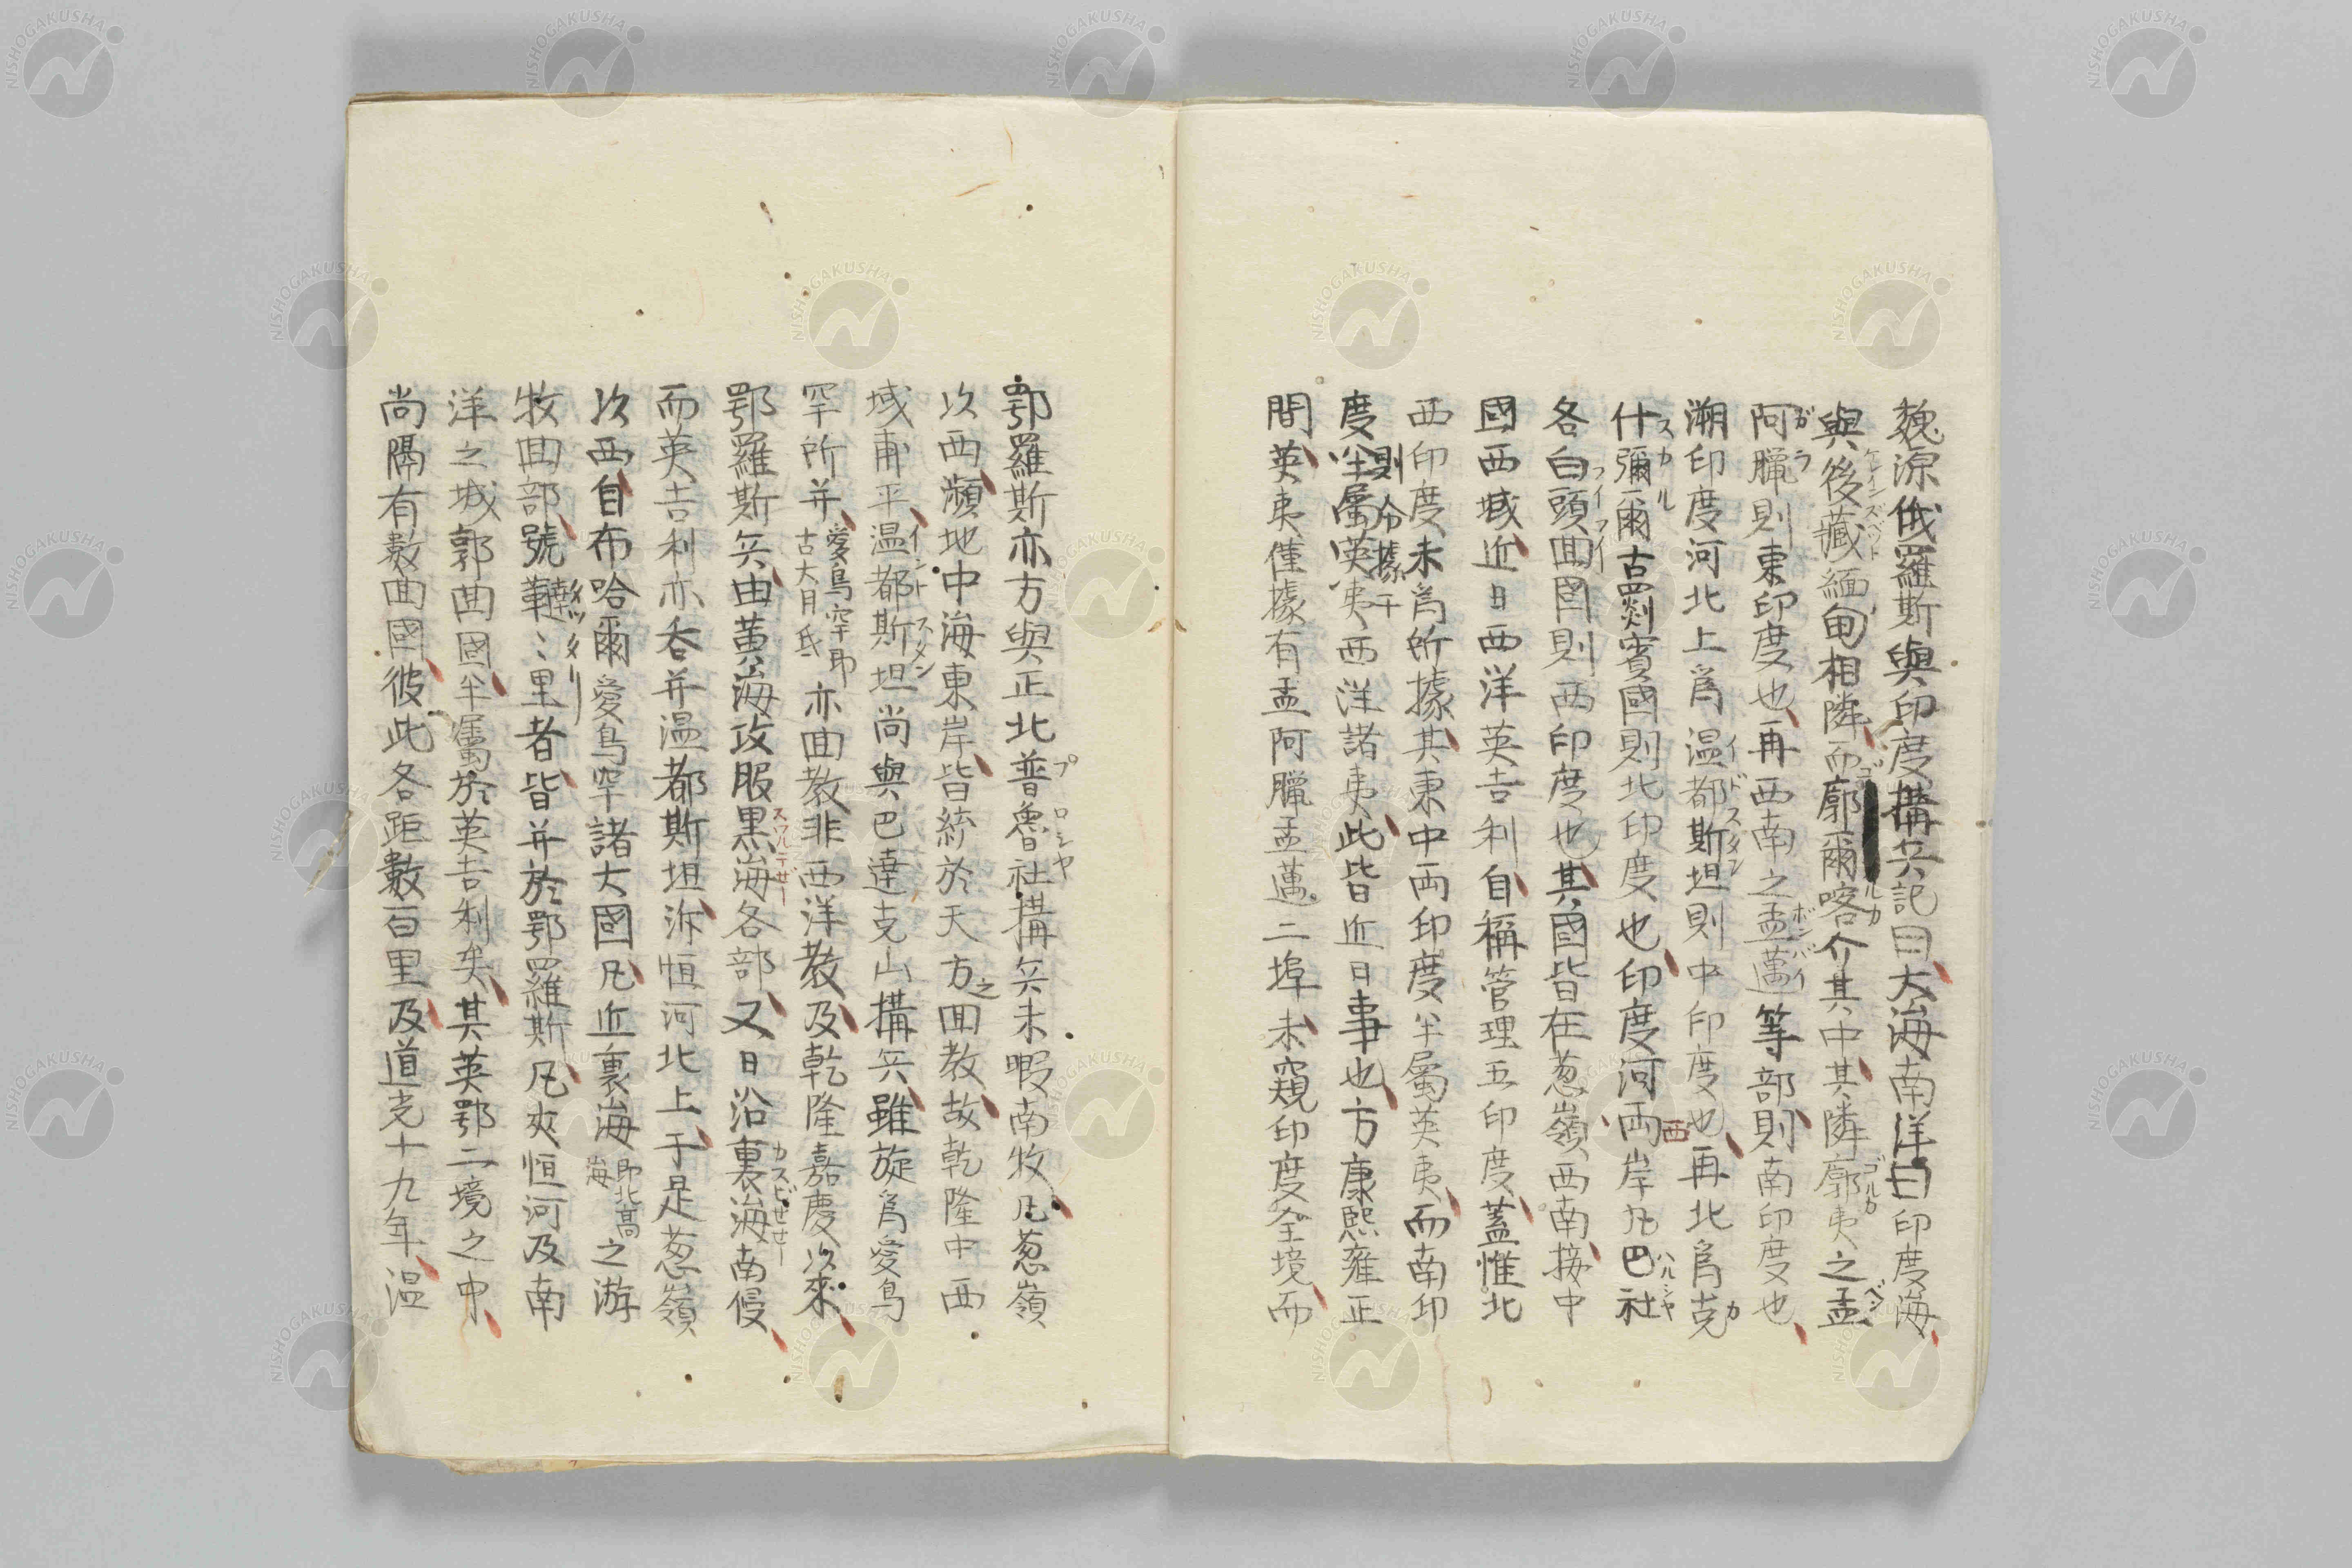 魏源俄羅斯與印度搆兵記曰大海南洋曰印度海
與後藏緬甸相隣而廓爾喀介其中其隣廓夷之孟
阿臘則東印度也再西南之孟邁等部則南印度也
溯印度河北上爲温都斯坦則中印度也再北爲克
什彌爾古罽賓國則北印度也印度河西岸凡巴社
各白頭回國則西印度也其國皆在葱嶺西南接中
國西域近日西洋英吉利自稱管理五印度蓋惟北
西印度未爲所據其東中両印度半屬英夷而南印
度則今據于半屬英夷西洋諸夷此皆近日事也方康熙雍正
間英夷僅據有孟阿臘孟邁二埠未窺印度全境而
鄂羅斯亦方與正北普魯社搆兵未暇南牧凡葱嶺
以西瀕地中海東岸皆統於天方之回教故乾隆中西
域甫平温都斯坦尚與巴達克山搆兵雖旋爲愛烏
罕所并愛烏罕即古大月氐亦回教非西洋教及乾隆嘉慶以來
鄂羅斯兵由黄海攻服黒海各部又日沿裏海南侵
而英吉利亦呑并温都斯坦泝恒河北上于是葱嶺
以西自布哈爾愛烏罕諸大國凡近裏海即北高海之游
牧回部號韃々里者皆并於鄂羅斯凡夾恒河及南
洋之城郭回國半屬於英吉利矣其英鄂二境之中
尚隔有數回國彼此各距數百里及道光十九年温